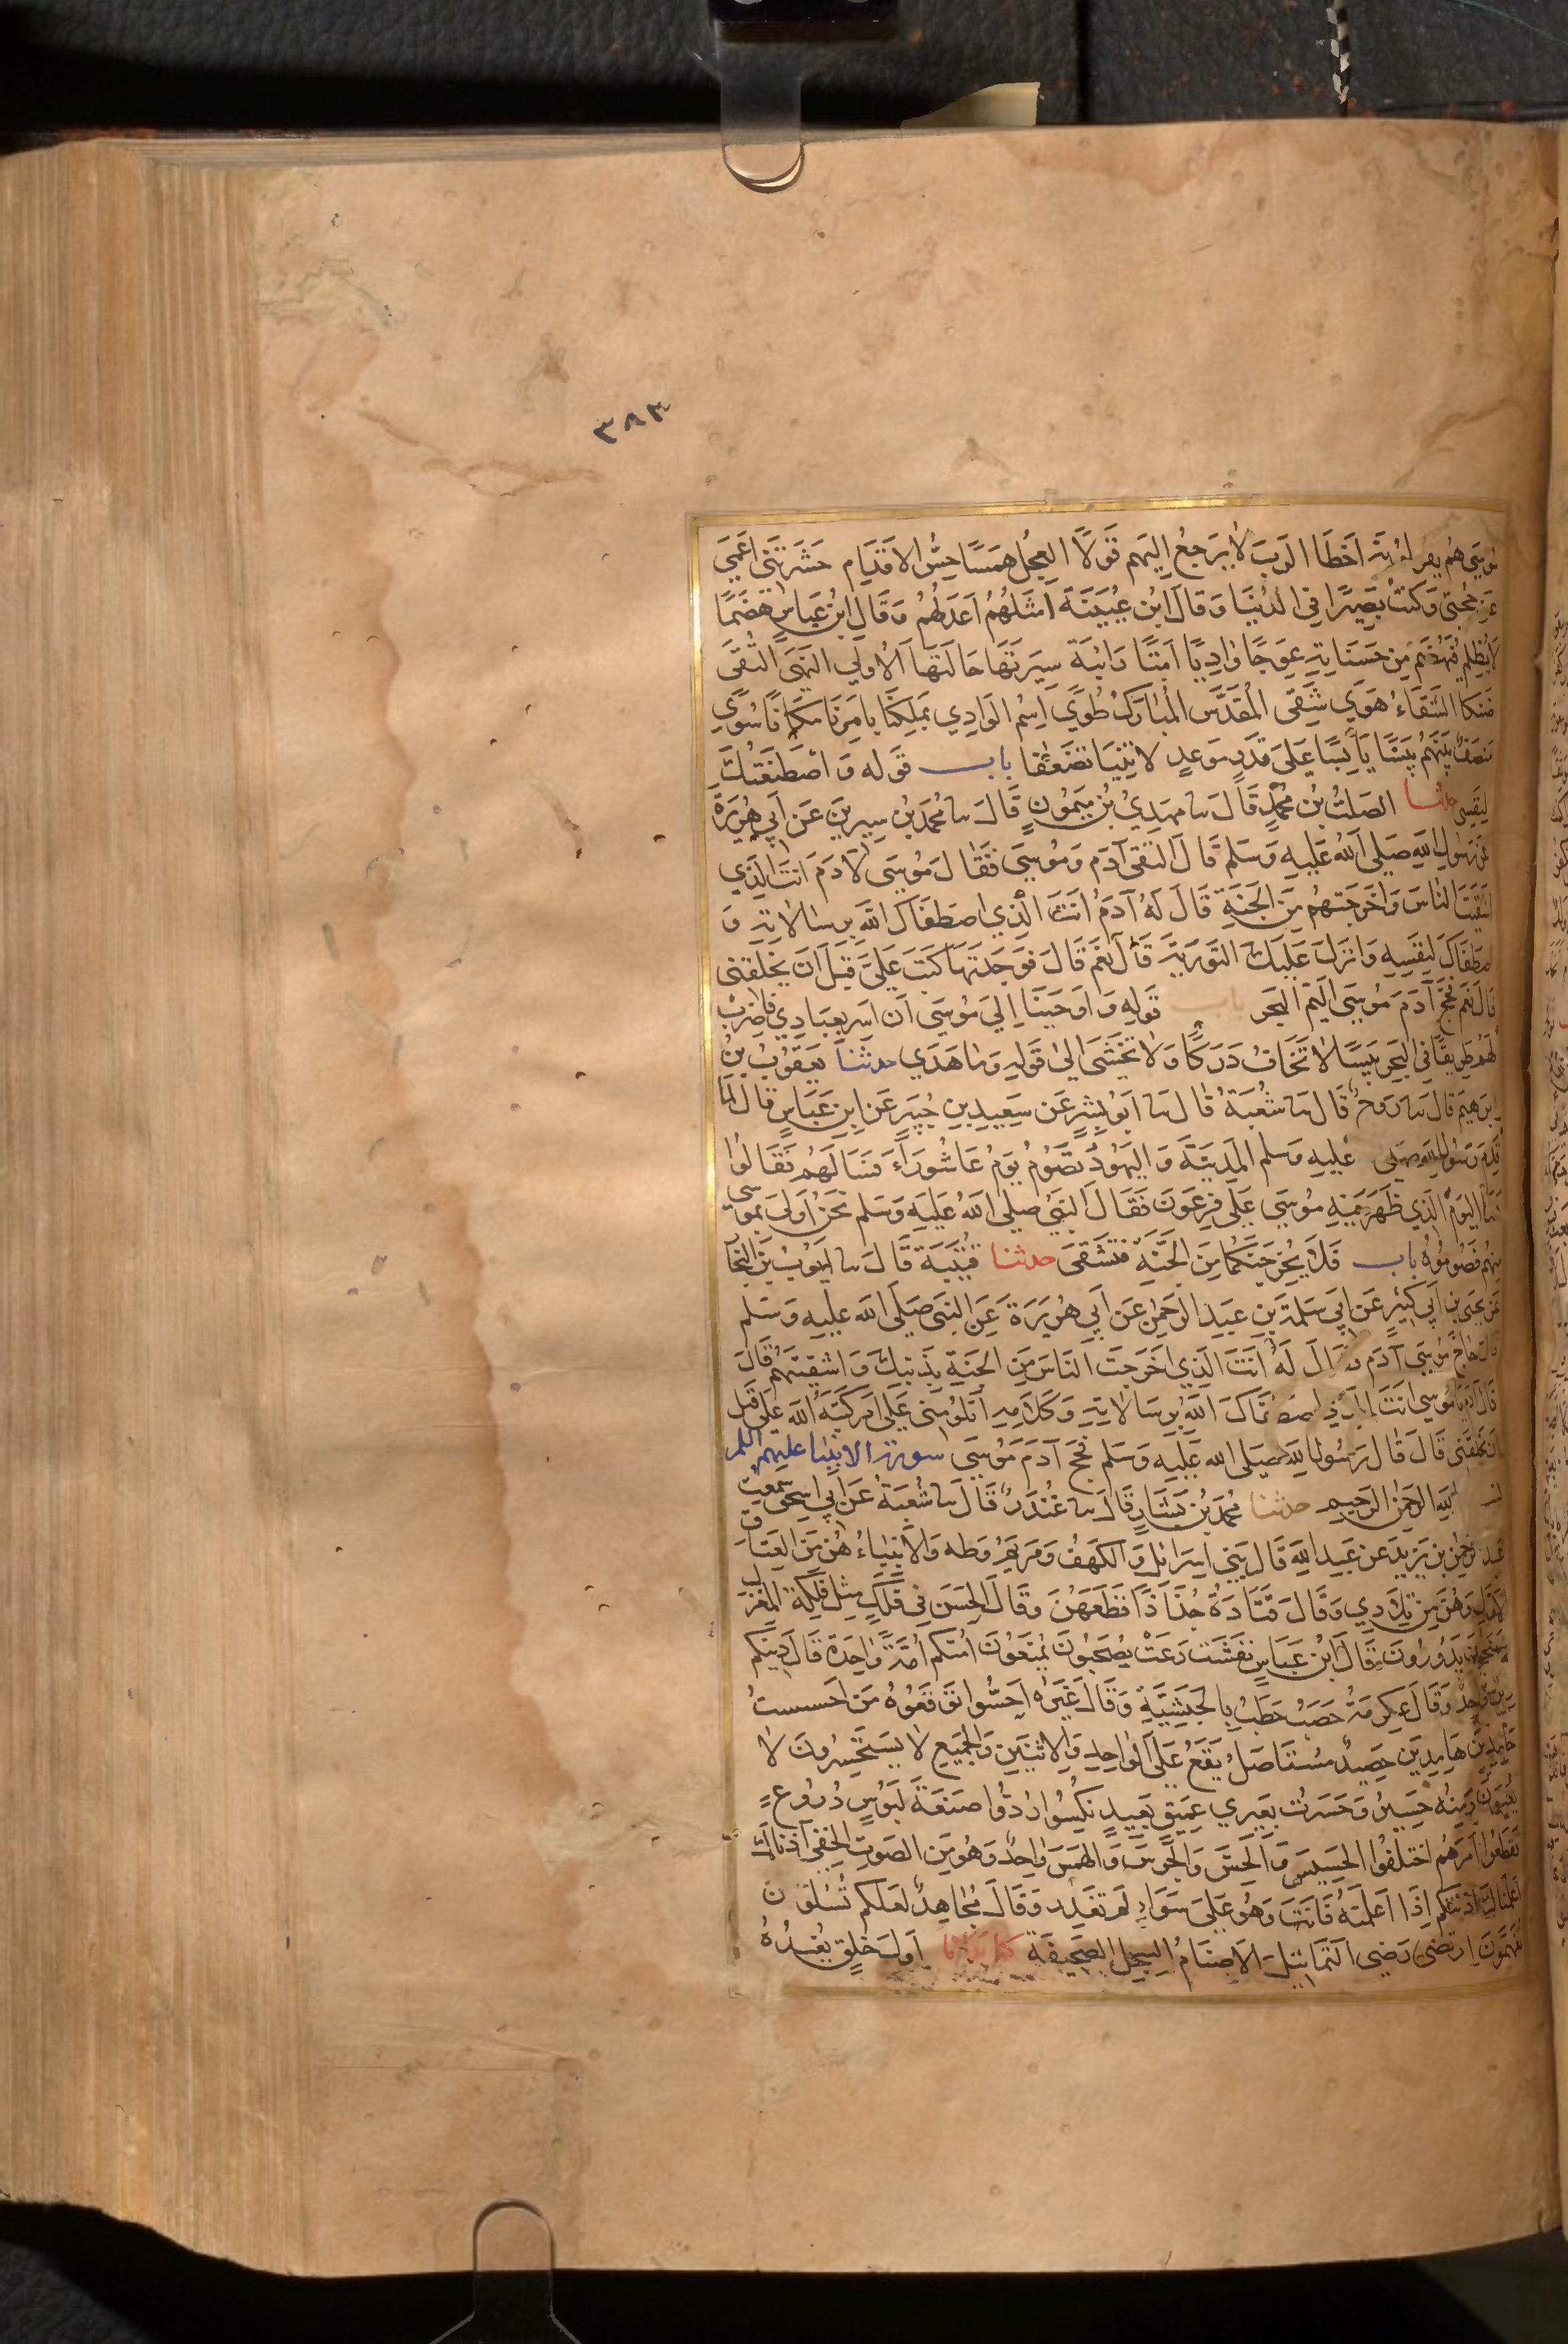 ٣٨٣
موسى هم يقولونه اخطا الرب لا يرجع اليهم قولا العجل همسا حس الاقدام حشرتني اعمى
عن حجتي وكنت بصيرا في الدنيا وقال ابن عيينة امثلهم اعدلهم وقال ابن عباس هضما
لا يظلم فيهضم من حسناته عوجا واديا امتا رابية سيرتها حالتها الاولى النهى التقى
ضنكا الشقاء هوى شقى المقدس المبارك طوى اسم الوادي بملكنا بامرنا مكانا سوى
منصف بينهم يبسا يابسا على قدر موعد لا تنيا تضعفا باب قوله واصطنعتك
لنفسي حدثنا الصلت بن محمد قال نا مهدي بن ميمون قال نا محمد بن سيرين عن ابي هريرة
عن رسول الله صلى الله عليه وسلم قال التقى آدم وموسى فقال موسى لآدم انت الذي
اشقيت الناس واخرجتهم من الجنة قال له آدم انت الذي اصطفاك الله برسالاته و
اصطفاك لنفسه وانزل عليك التورية قال نعم قال فوجدتها كتب علي قبل ان يخلقني
قال نعم فحج آدم موسى اليم البحر باب قوله واوحينا الى موسى ان اسر بعبادي فاضرب
لهم طريقا في البحر يبسا لا تخاف دركا ولا تخشى الى قوله وما هدى حدثنا يعقوب بن
ابرهيم قال نا روح قال نا شعبة قال نا ابو بشر عن سعيد بن جبير عن ابن عباس قال لما
قدم رسول الله صلى عليه وسلم المدينة واليهود تصوم يوم عاشوراء فسالهم فقالوا
هذا اليوم الذي ظهر فيه موسى على فرعون فقال النبي صلى الله عليه وسلم نحن اولى بموسى
منهم فصوموه باب فلا يخرجنكما من الجنة فتشقى حدثنا قتيبة قال نا ايوب بن النجار
عن يحيى بن ابي كثير عن ابي سلمة بن عبد الرحمن عن ابي هريرة عن النبي صلى الله عليه وسلم
قال حاج موسى آدم فقال له انت الذي اخرجت الناس من الجنة بذنبك واشقيتهم قال
قال آدم يا موسى انت الذي اصطفاك الله برسالاته وكلامه اتلومني على امر كتبه الله علي قبل
ان يخلقني قال قال رسول الله صلى الله عليه وسلم فحج آدم موسى سورة الانبيا عليهم السلم
الله الرحمن الرحيم حدثنا محمد بن بشار قال نا غندر قال نا شعبة عن ابي اسحق سمعت
عبد الرحمن بن يزيد عن عبد الله قال بني اسرائل والكهف ومريم وطه والانبياء هن من العتاق
الاول وهن من تلادي وقال قتادة جذاذا قطعهن وقال الحسن في فلك مثل فلكة المغزل
يسبحون يدورون قال ابن عباس نفشت رعت يصحبون يمنعون امتكم امة واحدة قال دينكم
دين واحد وقال عكرمة حصب حطب بالحبشية وقال غيره احسوا توقعوه من احسست
خامدين هامدين حصيد مستاصل يقع على الواحد والاثنين والجميع لا يستحسرون لا
يعيون ومنه حسير وحسرت بعيري عميق بعيد نكسوا ردوا صنعة لبوس دروع
تقطعوا امرهم اختلفوا الحسيس والحس والجرس والهمس واحد وهو من الصوت الخفي آذناك
اعلمناك آذنتكم اذا اعلمته فانت وهو على سواء لم تغدر وقال مجاهد لعلكم تسئلون
تفهمون ارتضى رضي التماثيل الاصنام السجل الصحيفة كما بدانا اول خلق نعيده